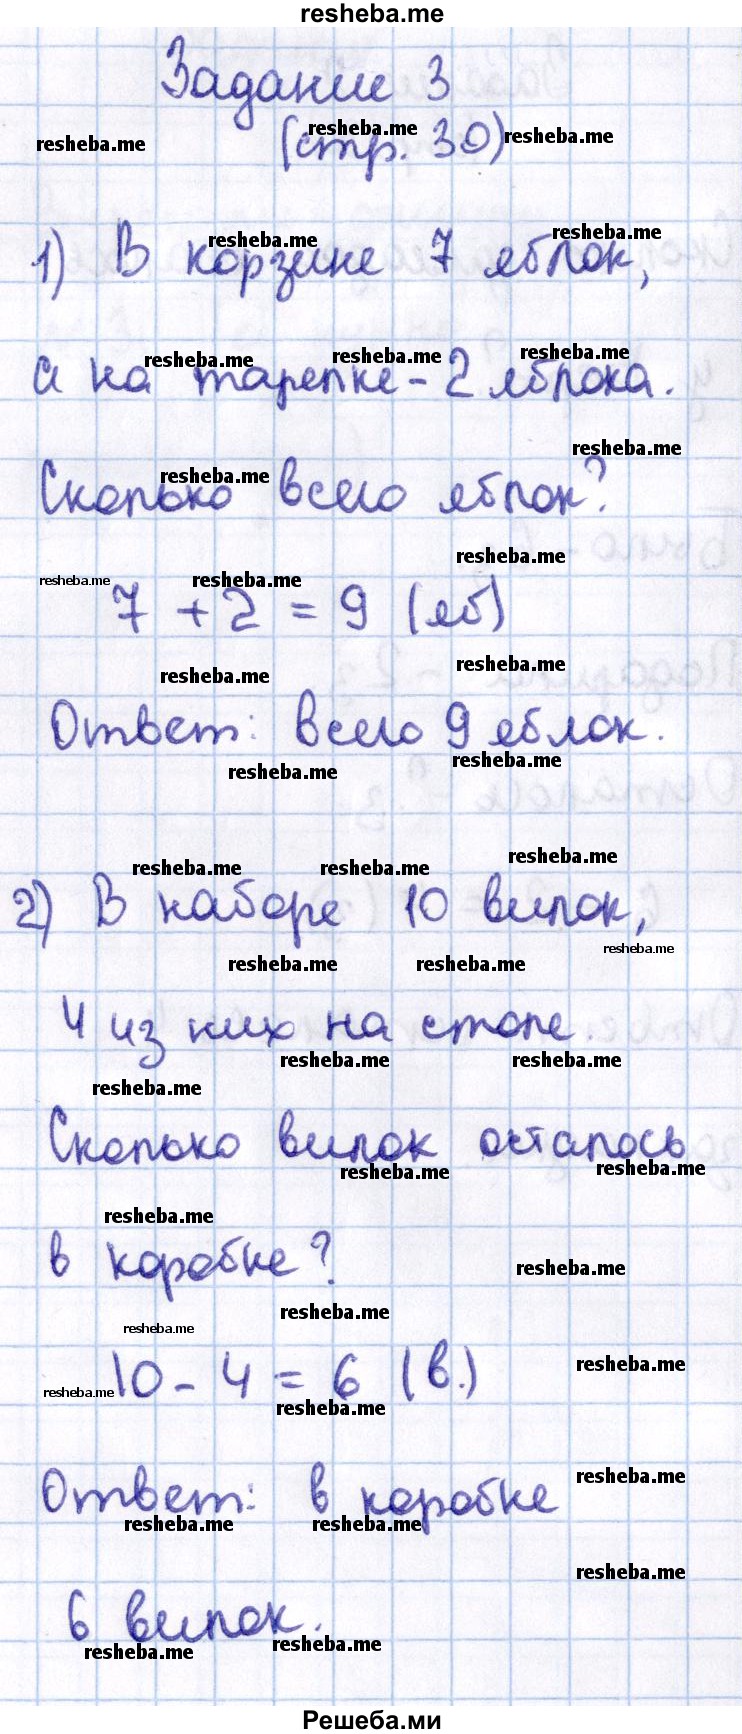 resheba.me
Задание 3
(стр. 30)
1) В корзине 7 яблок,
а на тарелке - 2 яблока.
Сколько всего яблок?
7 + 2 = 9 (яб)
Ответ: всего 9 яблок.
2) В наборе 10 вилок,
4 из них на столе.
Сколько вилок осталось
в коробке?
10 - 4 = 6 (в.)
Ответ: в коробке
6 вилок.
Решеба.ми